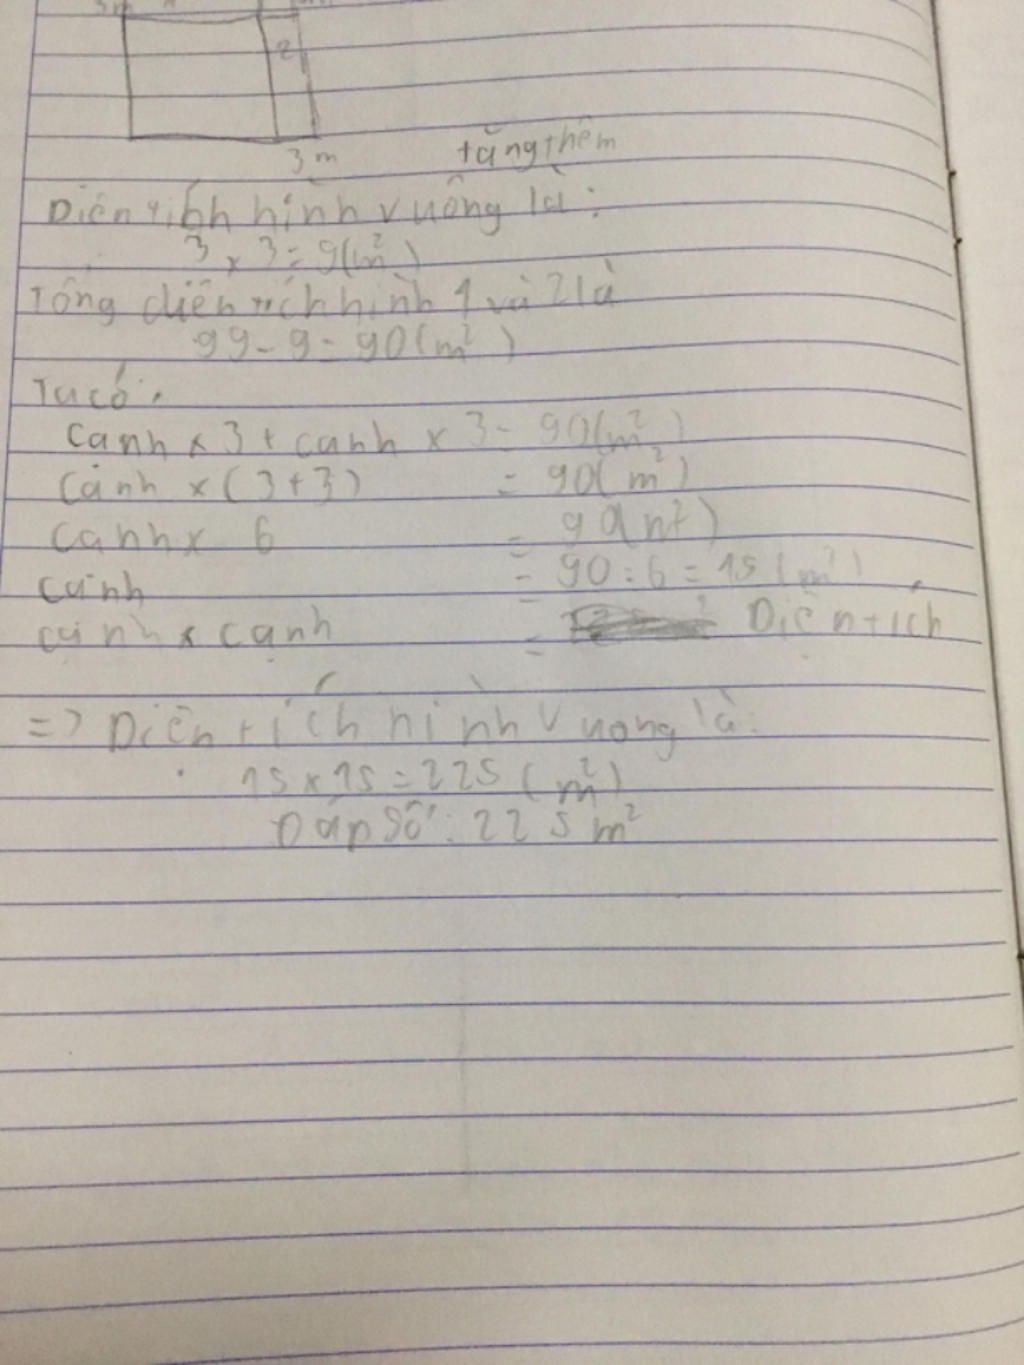 3m
2
3m tăng thêm
Diện tích hình vuông là:
3 x 3 = 9(m²)
Tổng diện tích hình 1 và 2 là
99 - 9 = 90(m²)
Ta có:
Cạnh x 3 + cạnh x 3 = 90(m²)
Cạnh x (3+3) = 90(m²)
Cạnh x 6 = 90(m²)
Cạnh = 90 : 6 = 15 (m²)
cạnh x cạnh = Diện tích
=> Diện tích hình vuông là:
15 x 15 = 225 (m²)
Đáp số: 225m²